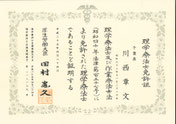 理学療法士免許証
千葉県
川西章文
理学療法士及び作業療法士法
(昭和四十年法律第百三十七号)に
より免許された理学療法士
であることを証明する
厚生労働大臣 田村憲久